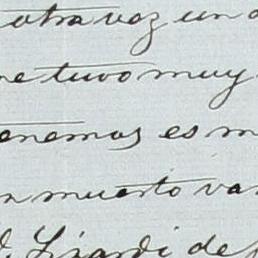 otra vez un
tuvo muy
enemos es m
n muerto va
Lizardi de